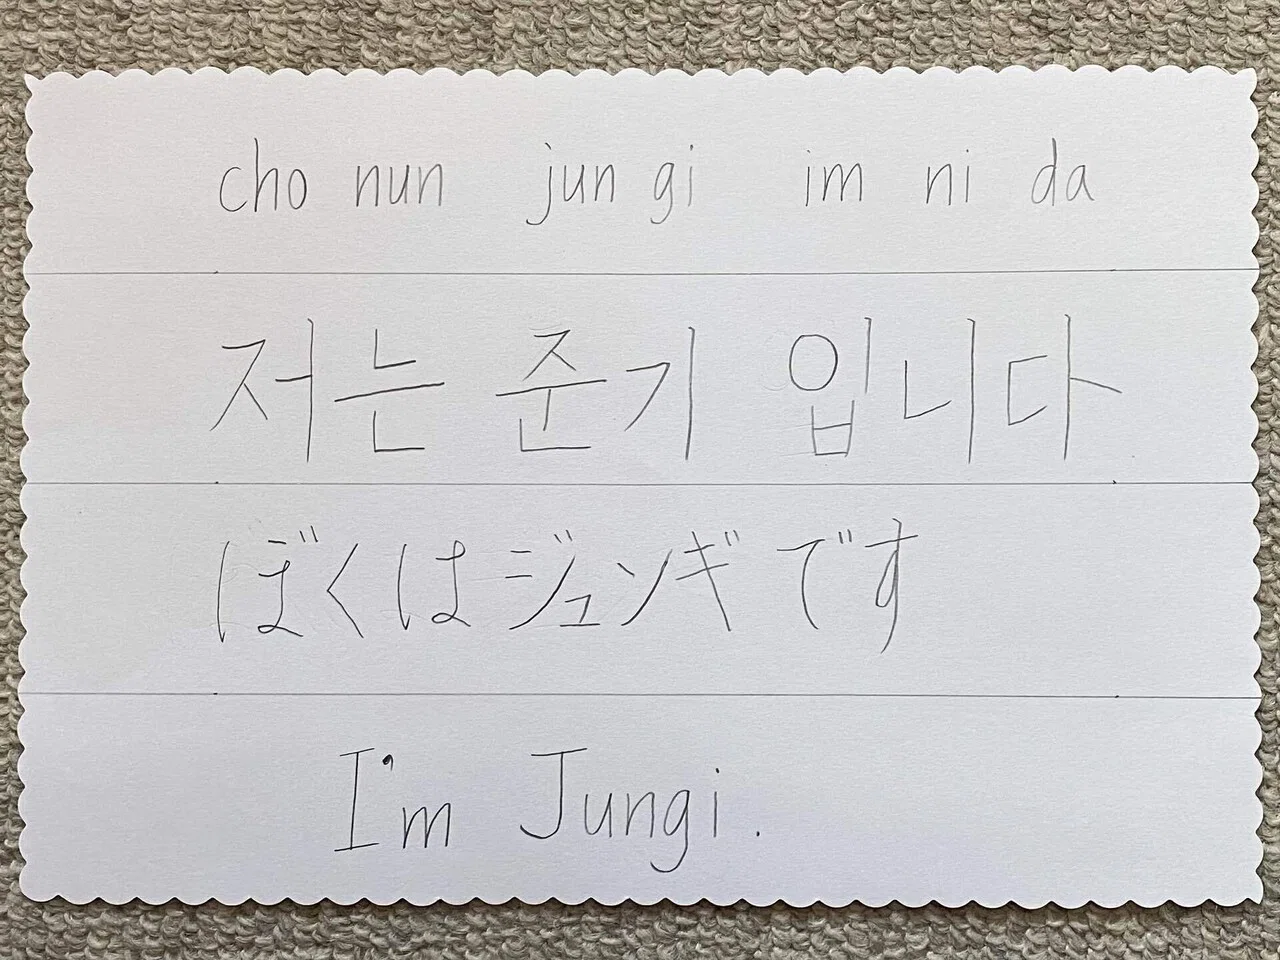 cho nun jun gi im ni da
저는 준기 입니다
ぼくはジュンギです
I'm Jungi.